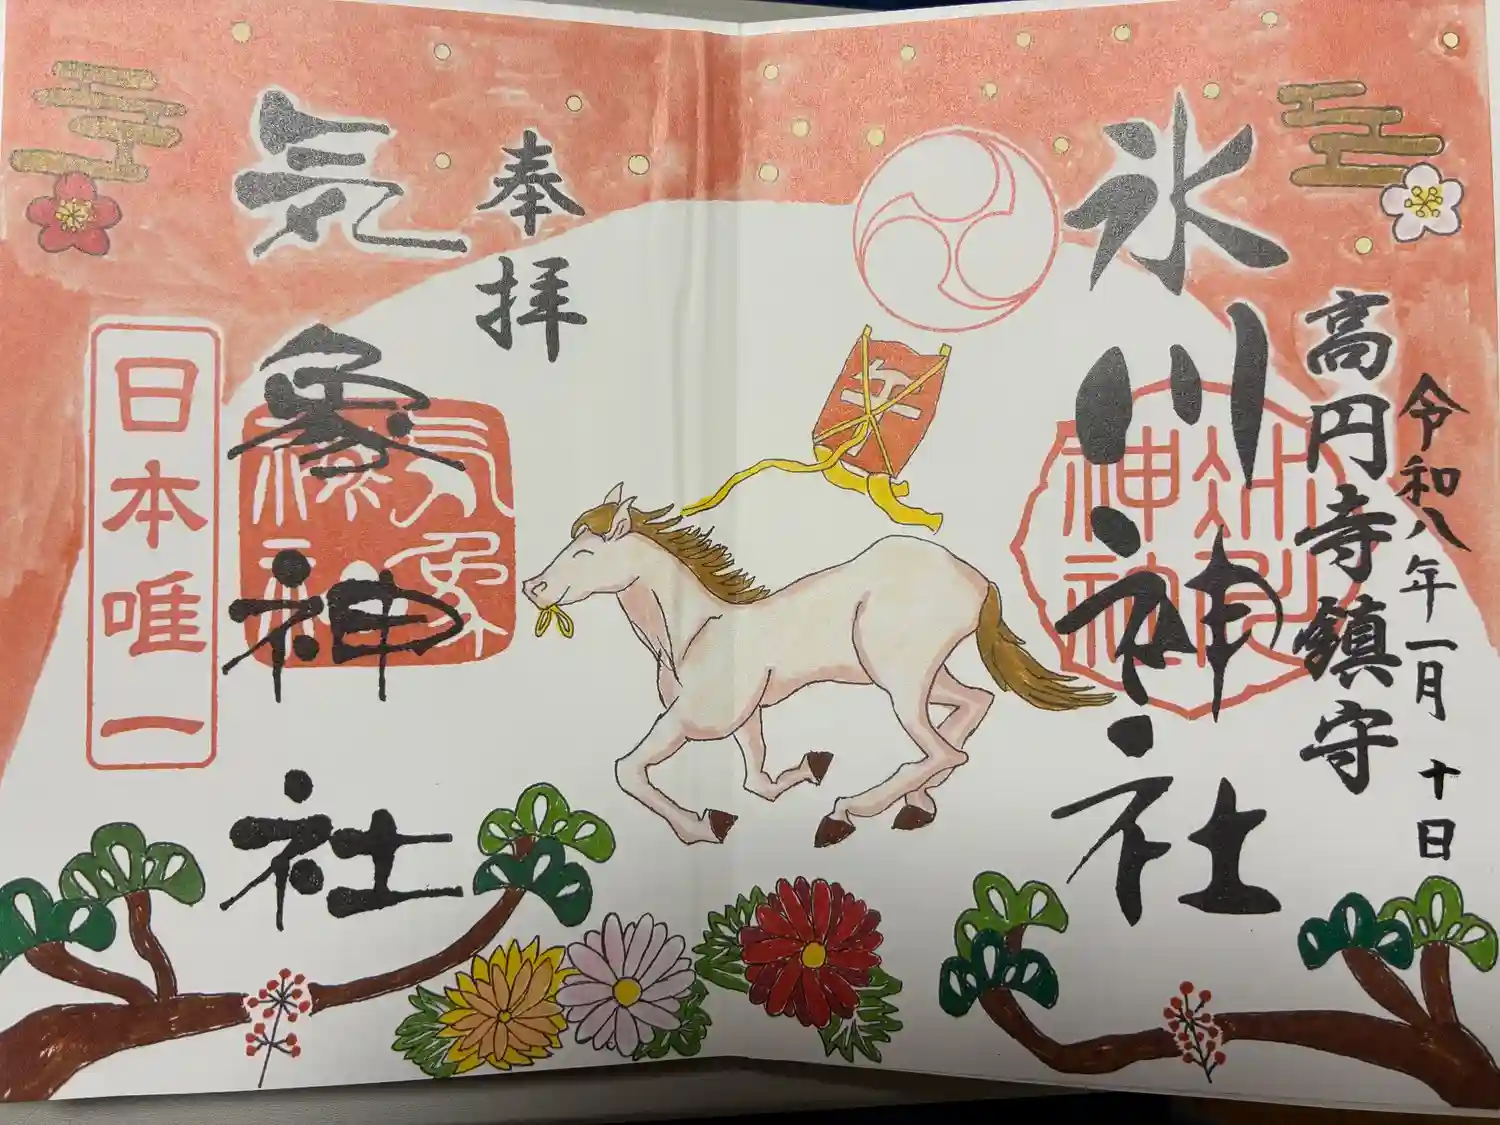 令和八年一月十日
高円寺鎮守
氷川神社
午
奉拝
気象神社
気象神社
日本唯一